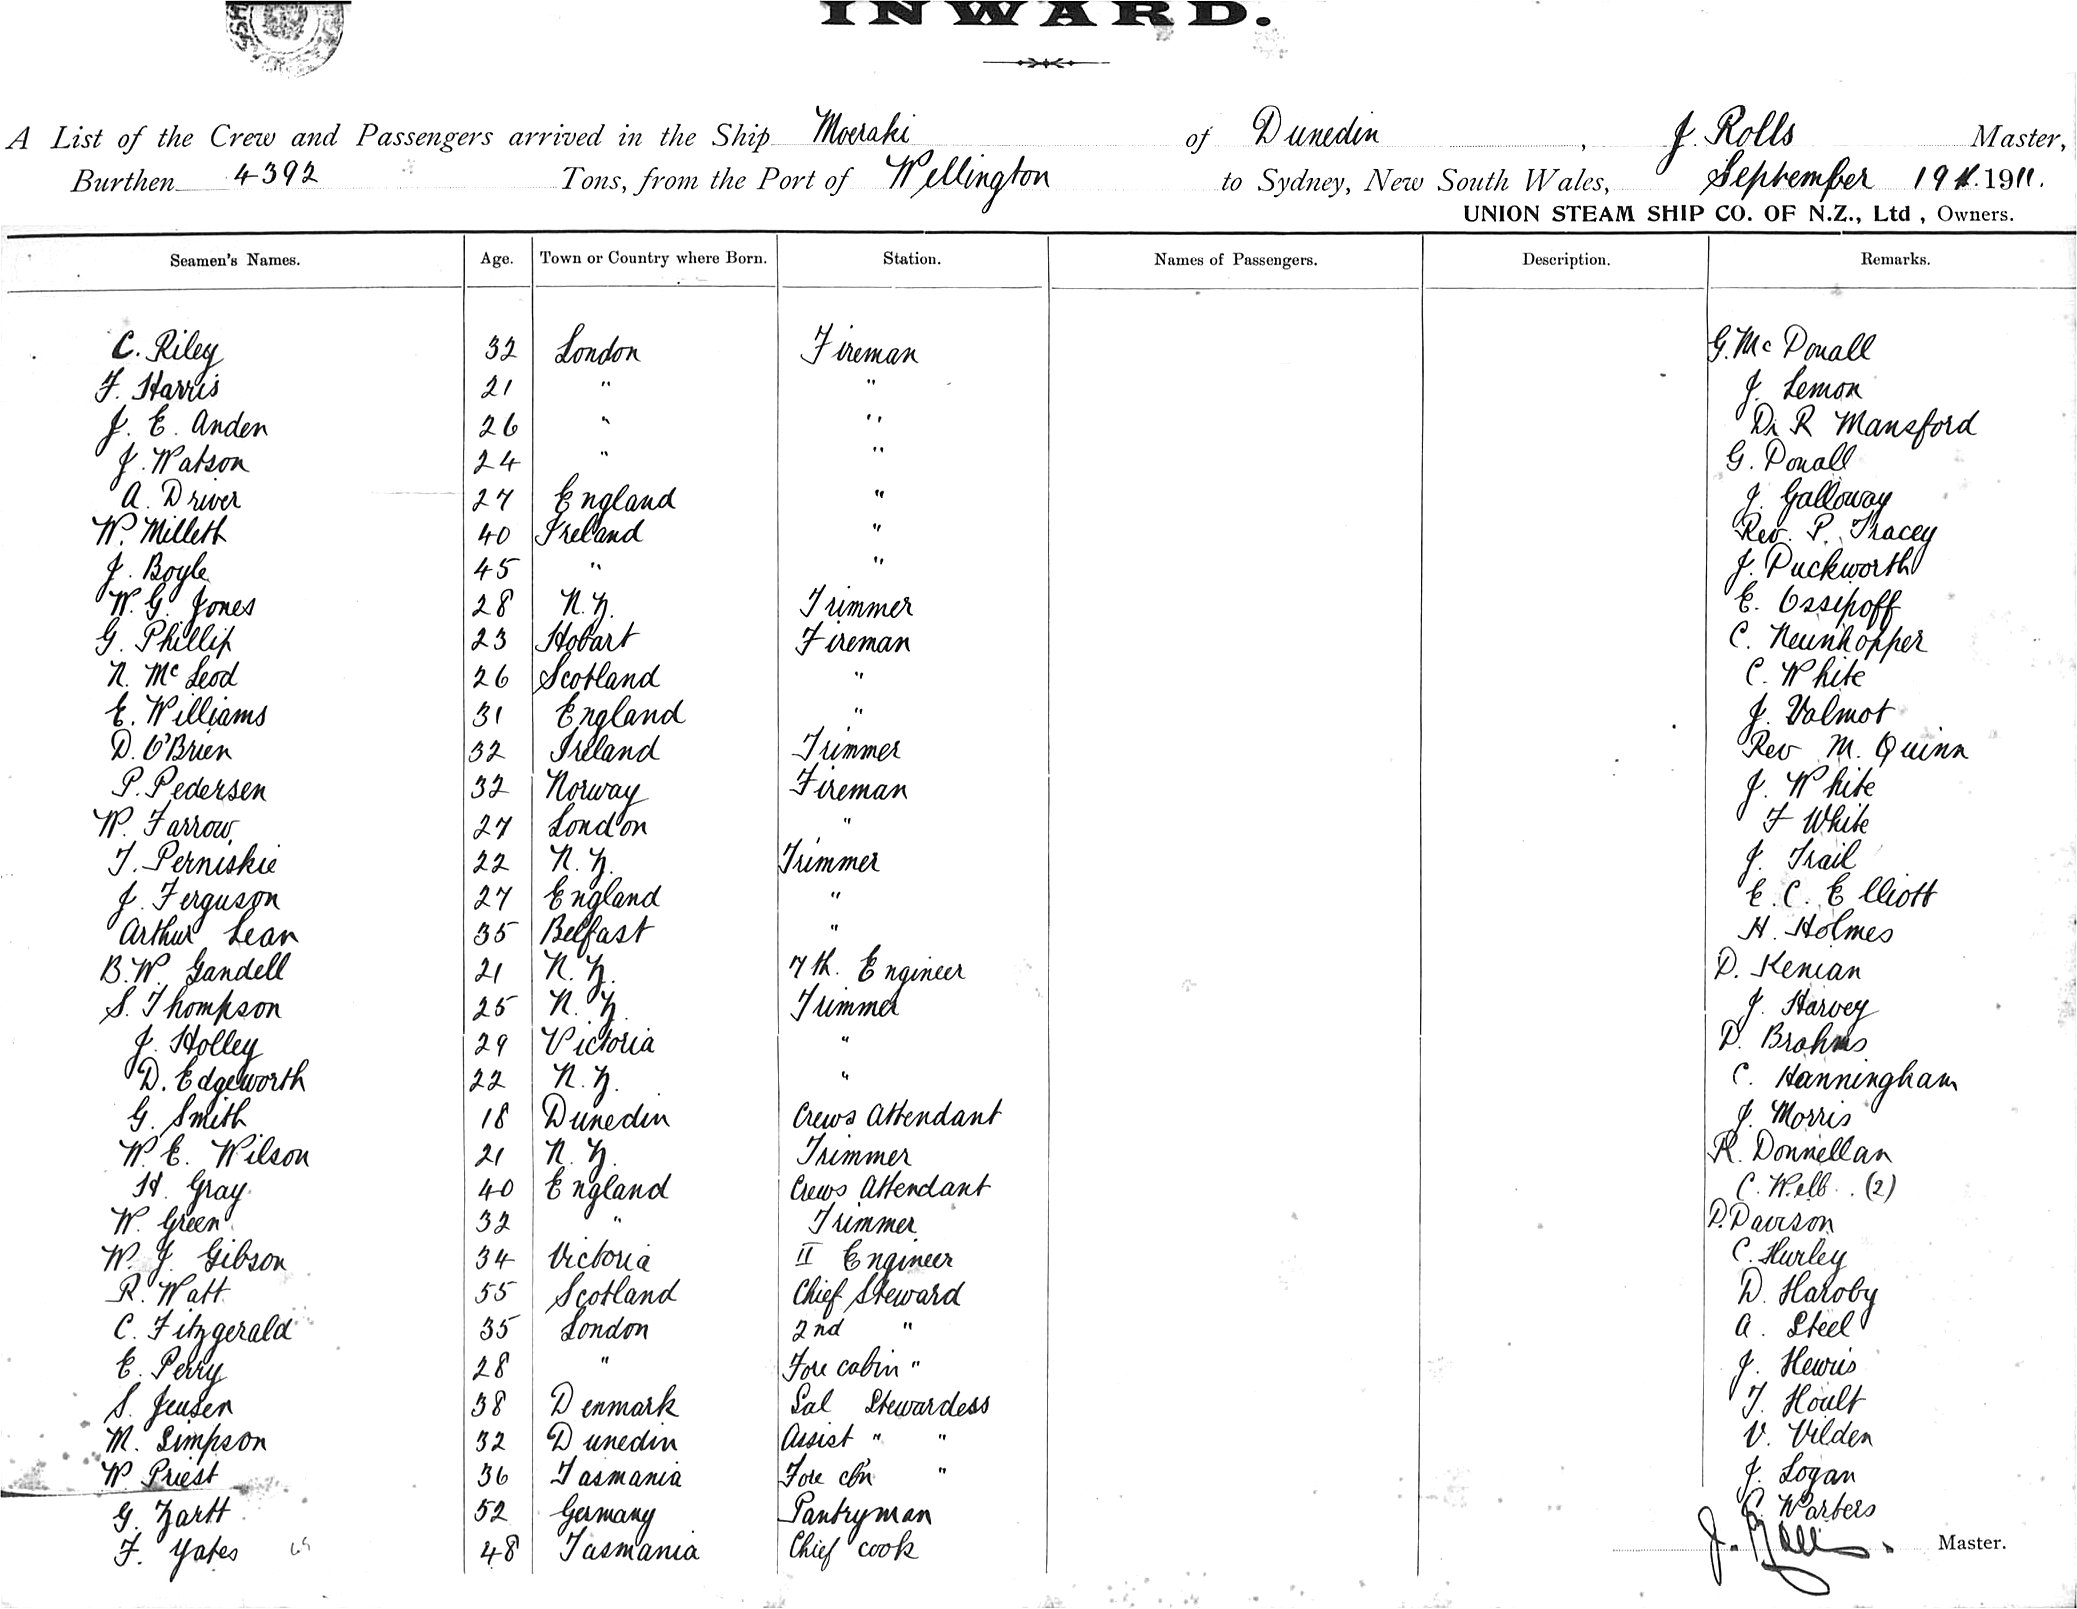 INWARD.
A List of the Crew and Passengers arrived in the Ship Moeraki of Dunedin, J. Rolls Master,
Burthen 4392 Tons, from the Port of Wellington to Sydney, New South Wales, September 19th 1911.
UNION STEAM SHIP CO. OF N.Z., Ltd, Owners.
Seamen's Names. Age. Town or Country where Born. Station. Names of Passengers. Description. Remarks.
C. Riley 32 London Fireman G. McDouall
F. Harris 21 " " J. Lemon
J. E. Anden 26 " " Dr R Mansford
J. Watson 24 " " G. Douall
A. Driver 27 England " J. Galloway
W. Millett 40 Ireland " Rev. P. Tracey
J. Boyle 45 " " J. Duckworth
W. G. Jones 28 N.Z. Trimmer E. Ossipoff
G. Phillip 23 Hobart Fireman C. Neunhopper
N. McLeod 26 Scotland " C. White
E. Williams 31 England " J. Valmot
D. O'Brien 32 Ireland Trimmer Rev M. Quinn
P. Pedersen 32 Norway Fireman J. White
W. Farrow 27 London " F White
T. Perniskie 22 N.Z. Trimmer J. Trail
J. Ferguson 27 England " E. C. Elliott
Arthur Lean 35 Belfast " H. Holmes
B. W. Gandell 21 N.Z. 7th. Engineer D. Kenian
S. Thompson 25 N.Z. Trimmer J. Harvey
J. Holley 29 Victoria " D. Brahms
D. Edgeworth 22 N.Z. " C. Hanningham
G. Smith 18 Dunedin Crews Attendant J. Morris
W. E. Wilson 21 N.Z. Trimmer R. Donnellan
H. Gray 40 England Crews Attendant C. Webb (2)
W. Green 32 " Trimmer D. Davison
W. J. Gibson 34 Victoria II Engineer C. Hurley
R. Watt 55 Scotland Chief Steward D. Haroby
C. Fitzgerald 35 London 2nd " A. Steel
E. Perry 28 " Fore cabin " J. Hewis
S. Jensen 38 Denmark Sal Stewardess T. Hoult
M. Simpson 32 Dunedin Assist " " V. Vilden
W Priest 36 Tasmania Fore cbn " J. Logan
G. Zartt 52 Germany Pantryman C. Warbers
F. Yates 48 Tasmania Chief cook J. Rolls. Master.